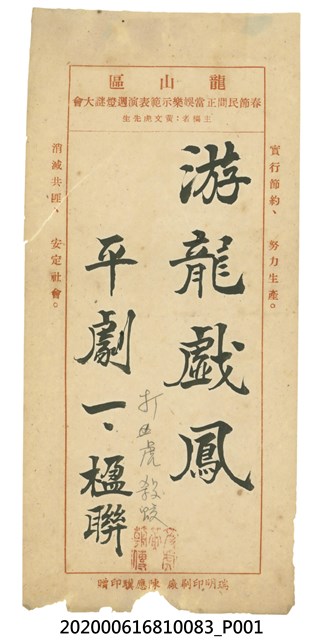 龍山區
春節民間正當娛樂示範表演週燈謎大會
主編者：黃文虎先生
實行節約、努力生產。
游龍戲鳳
平劇一、楹聯
打 虎 殺蛟
消滅共匪、安定社會。
瑞明印刷廠 陳應麟印贈
202000616810083_P001